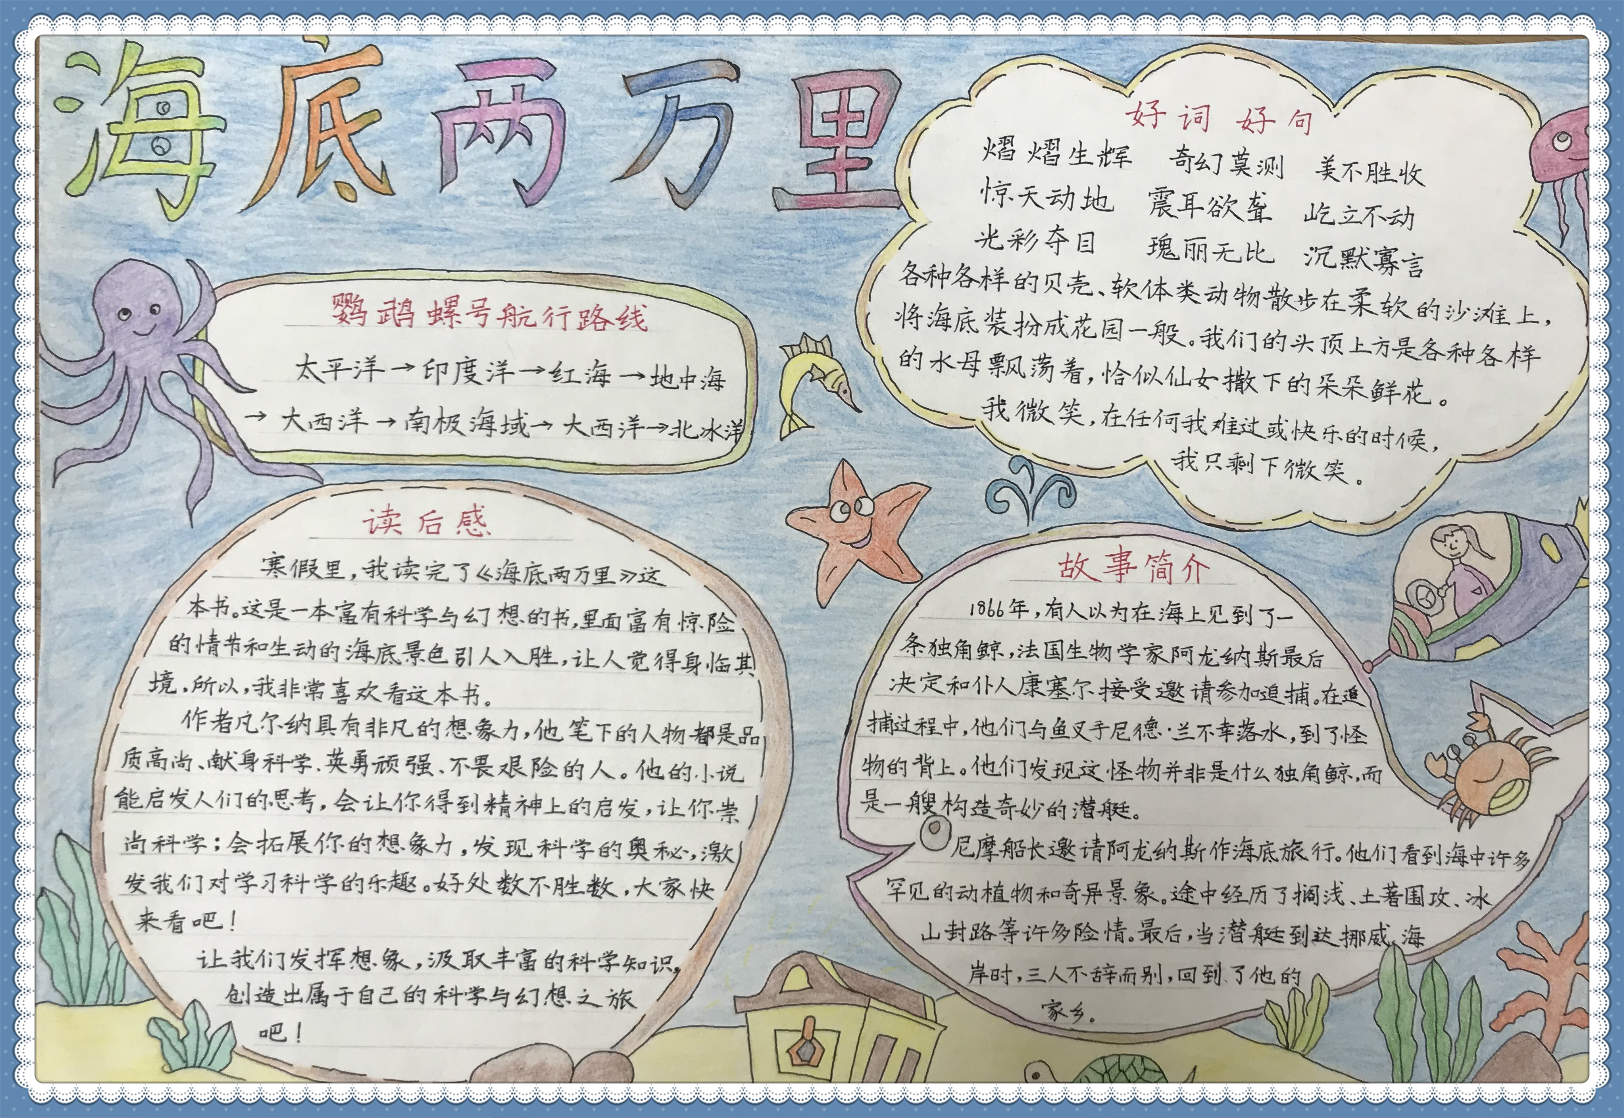 海底两万里
鹦鹉螺号航行路线
太平洋→印度洋→红海→地中海
→大西洋→南极海域→大西洋→北冰洋
好词好句
熠熠生辉 奇幻莫测 美不胜收
惊天动地 震耳欲聋 屹立不动
光彩夺目 瑰丽无比 沉默寡言
各种各样的贝壳、软体类动物散步在柔软的沙滩上，
将海底装扮成花园一般。我们的头顶上方是各种各样
的水母飘荡着，恰似仙女撒下的朵朵鲜花。
我微笑，在任何我难过或快乐的时候，
我只剩下微笑。
读后感
寒假里，我读完了《海底两万里》这
本书。这是一本富有科学与幻想的书，里面富有惊险
的情节和生动的海底景色引人入胜，让人觉得身临其
境，所以，我非常喜欢看这本书。
作者凡尔纳具有非凡的想象力，他笔下的人物都是品
质高尚、献身科学、英勇顽强、不畏艰险的人。他的小说
能启发人们的思考，会让你得到精神上的启发，让你崇
尚科学；会拓展你的想象力，发现科学的奥秘，激
发我们对学习科学的乐趣。好处数不胜数，大家快
来看吧！
让我们发挥想象，汲取丰富的科学知识，
创造出属于自己的科学与幻想之旅
吧！
故事简介
1866年，有人以为在海上见到了一
条独角鲸，法国生物学家阿龙纳斯最后
决定和仆人康塞尔接受邀请参加追捕。在追
捕过程中，他们与鱼叉手尼德·兰不幸落水，到了怪
物的背上。他们发现这怪物并非是什么独角鲸，而
是一艘构造奇妙的潜艇。
尼摩船长邀请阿龙纳斯作海底旅行。他们看到海中许多
罕见的动植物和奇异景象。途中经历了搁浅、土著围攻、冰
山封路等许多险情。最后，当潜艇到达挪威海
岸时，三人不辞而别，回到了他的
家乡。